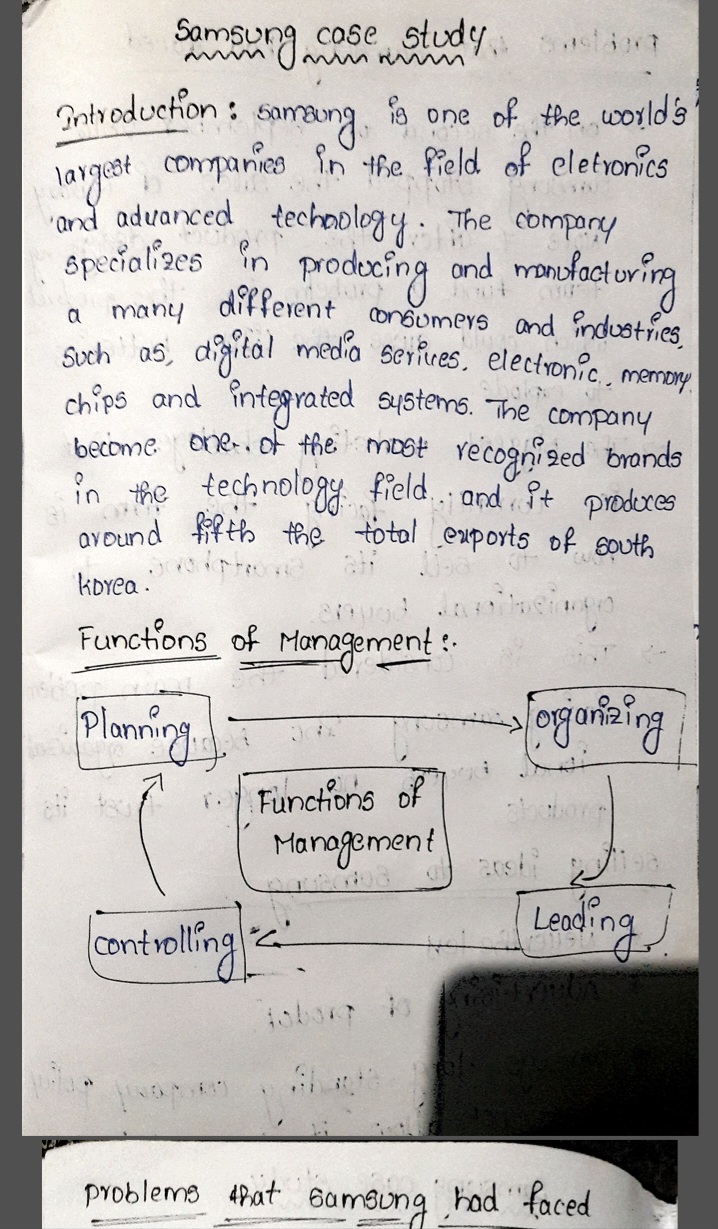 Samsung case study
Introduction: Samsung is one of the world's
largest companies in the field of eletronics
and advanced technology. The company
specializes in producing and manufacturing
a many different consumers and industries,
such as, digital media serives, electronic, memory
chips and integrated systems. The company
become one of the most recognized brands
in the technology field, and it produces
around fifth the total exports of south
korea.
Functions of Management:-
Planning
organizing
Functions of
Management
Leading
controlling
problems that samsung had faced